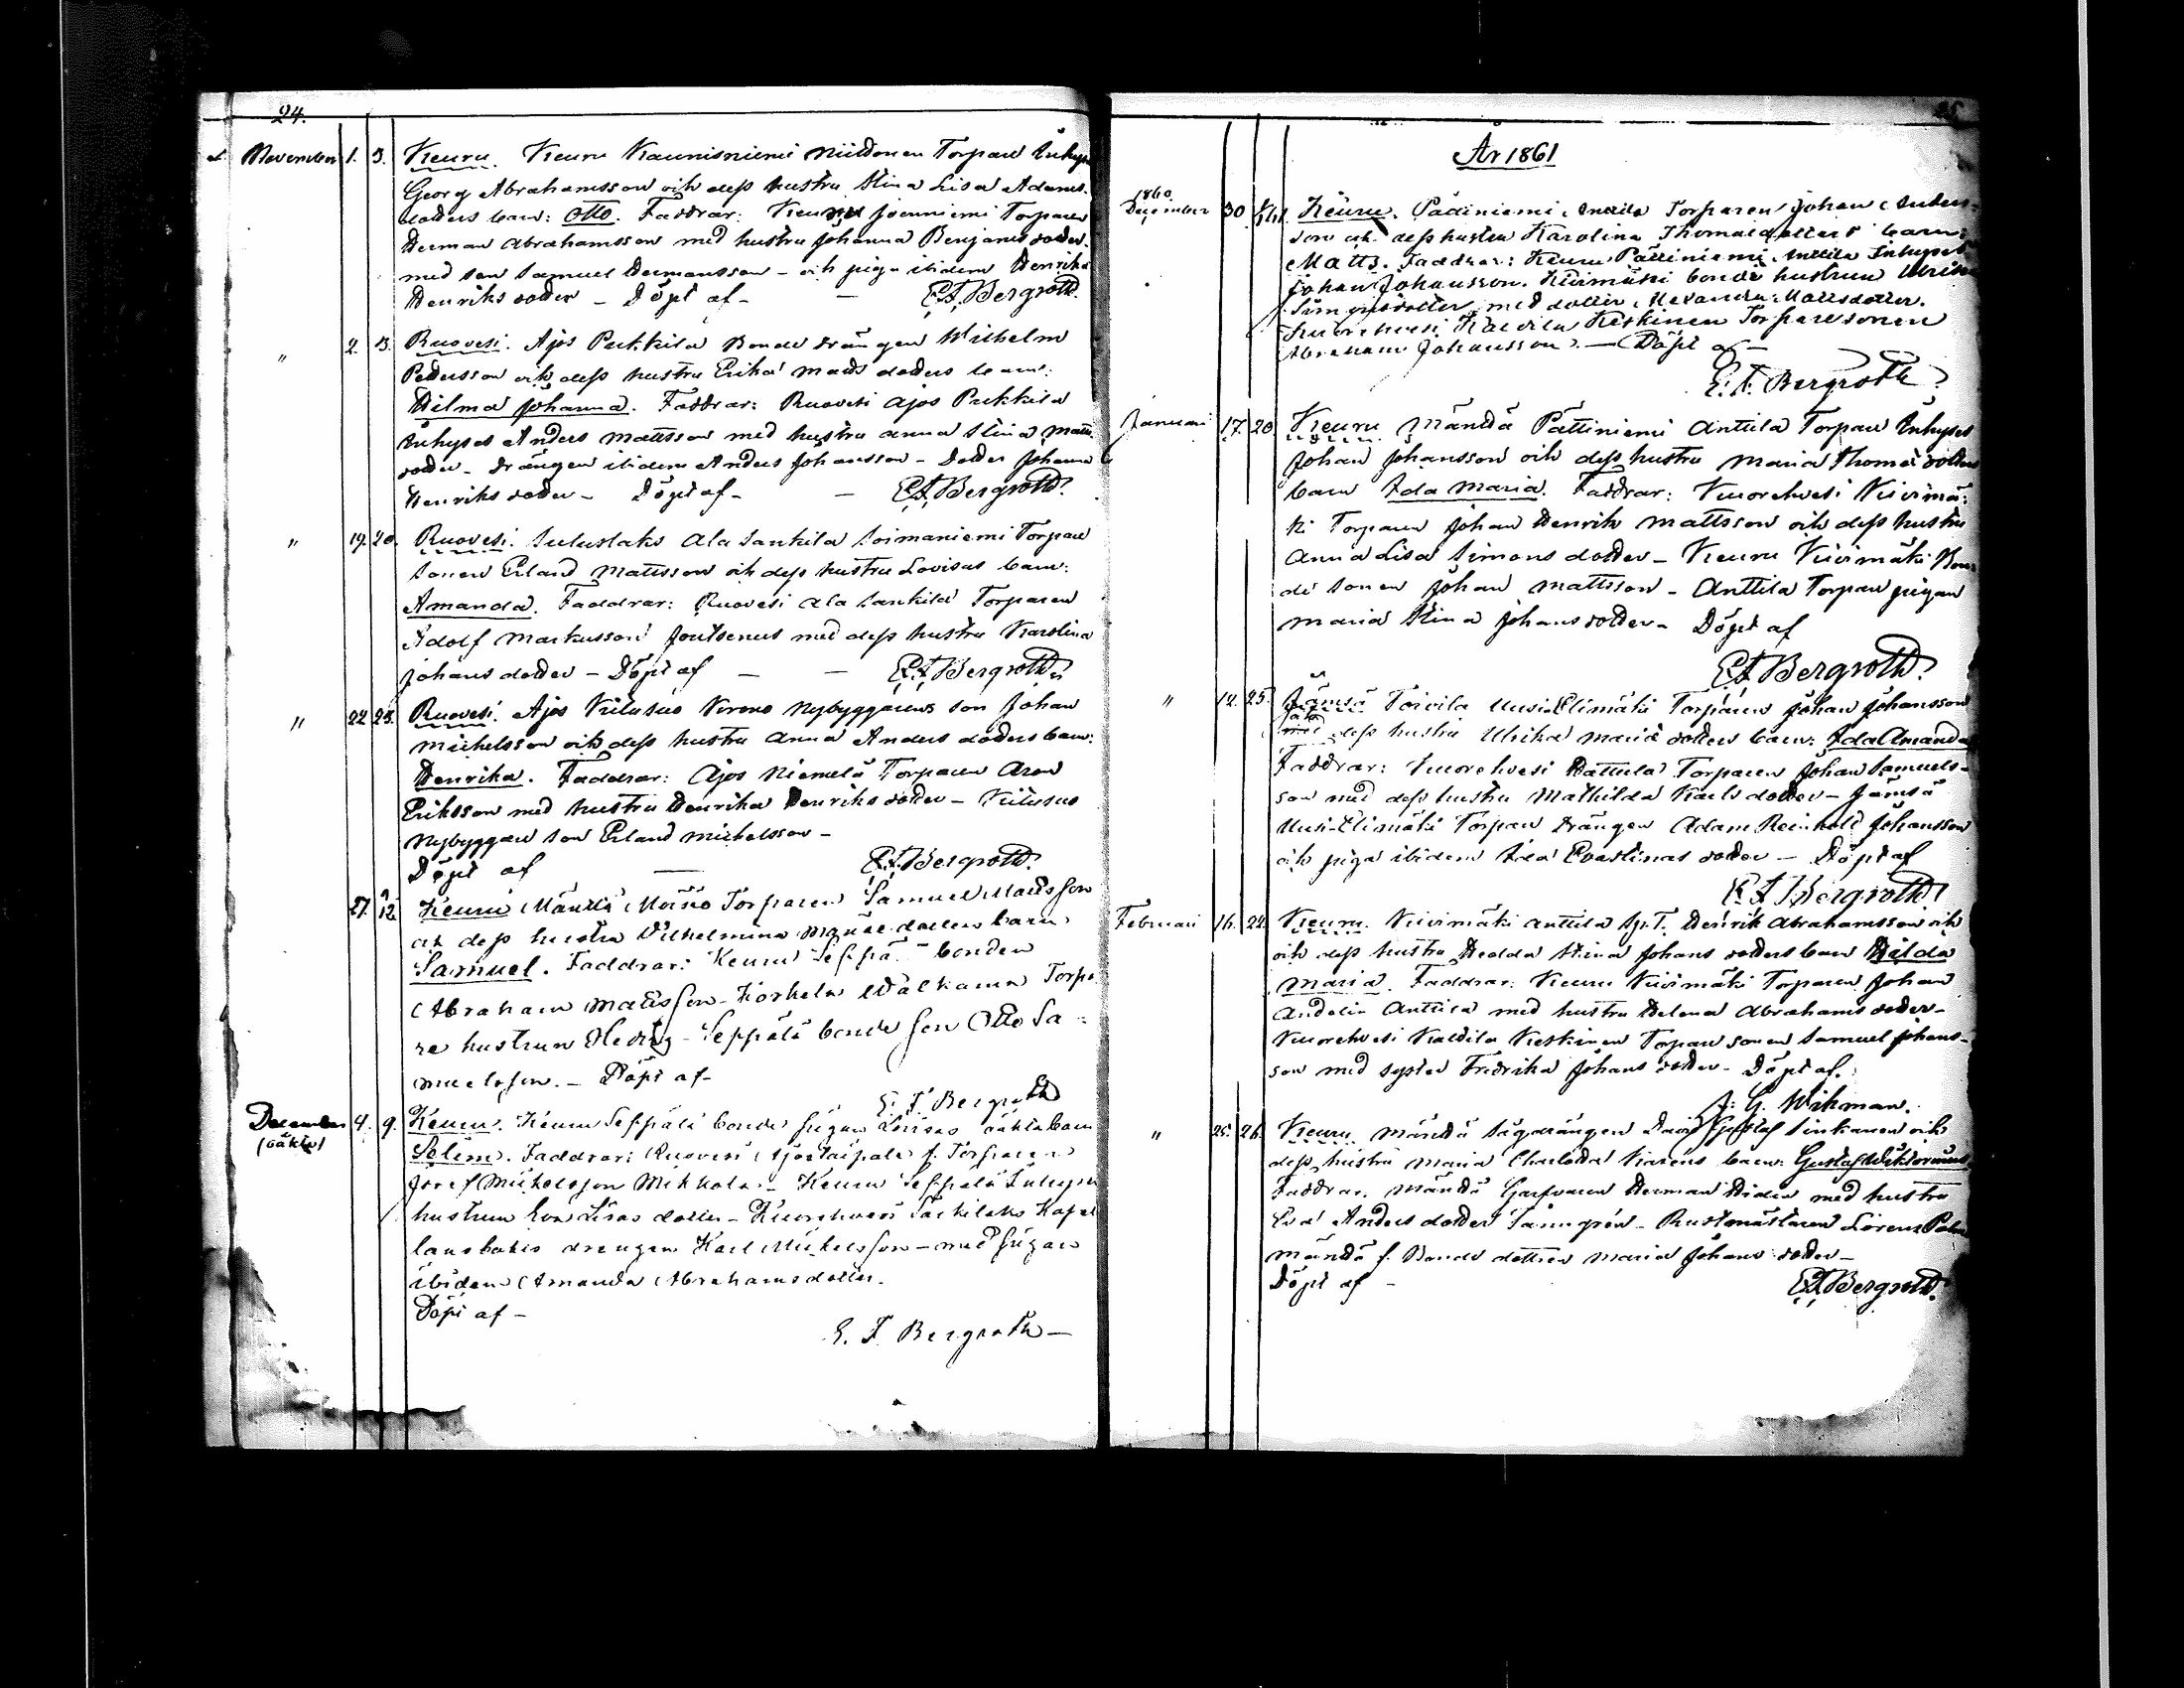 24.
November 1. 3. Keuru. Keuru Kaunisniemi Torpare Inhyses
Georg Abrahamsson och dess hustru Stina Lisa Adams-
dotters barn: Otto. Faddrar: Keuru Joenniemi Torparen
Herman Abrahamsson med hustru Johanna Benjamsdotter
med son Samuel Hermansson - och piga ibidem Henrika
Henriksdotter - Döpt af - E.F. Bergroth.
" 2. 3. Ruovesi. Ajos Pukkila Bonde drängen Wilhelm
Pettersson och dess hustru Erika Mats dotters barn:
Hilma Johanna. Faddrar: Ruovesi Ajos Pukkila
Inhyses Anders Mattsson med hustru Anna Stina Matts
dotter - drängen ibidem Anders Johansson - Dotter Johanna
Henriks dotter - Döpt af - E.F. Bergroth.
" 19. 20. Ruovesi. Ala Sankila Soimaniemi Torpare
sonen Erland Mattsson och dess hustru Lovisas barn:
Amanda. Faddrar: Ruovesi Ala Sankila Torparen
Adolf Markusson Joutsenus med dess hustru Karolina
Johans dotter - Döpt af - E.F. Bergroth.
" 22 25. Ruovesi. Ajos Nybyggarens son Johan
Michelsson och dess hustru Anna Anders dotters barn:
Henrika. Faddrar: Ajos Niemelä Torparen Aron
Eriksson med hustru Henrika Henriks dotter -
Nybyggare son Erland Michelsson -
Döpt af - E.F. Bergroth.
27. 12 Keuru Mänttä Torparen Samuel Mattsson
och dess hustru Wilhelmina dotters barn
Samuel. Faddrar: Keuru Seppä bonden
Abraham Mattsson - Torpa
re hustrun Hedvig - Seppälä bonde son Otto Sa-
muelsson. - Döpt af -
E. F. Bergroth
December 4. 9. Keuru. Keuru Seppälä bonde pigan Lovisas oäkta barn
(oäkta) Selim. Faddrar: Ruovesi f. Torparen
Josef Michelsson Mikkola - Keuru Seppälä Inhyses
hustrun Eva Lisas dotter - Kuorehvesi Särkilaks Kapel
lans bohls drengen Karl Michelsson - med pigan
ibidem Amanda Abrahamsdotter.
Döpt af -
E. F. Bergroth -
År 1861
1860
December 30 Keuru. Pätiniemi Anttila Torparen Johan Anders-
son och dess hustru Karolina Thomasdotters barn:
Matts. Faddrar: Keuru Pätiniemi Anttila Inhyses
Johan Johansson. Kiivimäki bonde hustrun Ulrika
Simonsdotter med dotter Alexandra Mattsdotter.
Kuorehvesi Keskinen Torparesonen
Abraham Johansson. - Döpt af -
E. F. Bergroth
Januari 17. 20 Keuru Mänttä Pättiniemi Anttila Torpare Inhyses
Johan Johansson och dess hustru Maria Thomæ dotters
barn Ida Maria. Faddrar: Kuorehvesi Kivimä:
ki Torparen Johan Henrik Mattsson och dess hustru
Anna Lisa Simons dotter - Keuru Kivimäki Bon-
de sonen Johan Mattsson - Anttila Torpare pigan
Maria Stina Johans dotter - Döpt af
E.F. Bergroth.
" 12. 25. Jämsä Toivila Uusi-Elimäki Torparen Johan Johansson
och
dess hustru Ulrika Maria dotters barn: Ida Amanda
Faddrar: Kuorehvesi Hattula Torparen Johan Samuels-
son med dess hustru Mathilda Karls dotter - Jämsä
Uusi-Elimäki Torpare Drängen Adam Reinhold Johansson
och piga ibidem Ida Evastinas dotter - Döpt af
E F Bergroth
Februari 16. 24. Keuru. Kivimäki Anttila Henrik Abrahamsson och
och dess hustru Hedda Stina Johans dotters barn Hilda
Maria. Faddrar: Keuru Kivimäki Torparen Johan
Andelin Anttila med hustru Helena Abrahams dotter -
Kuorehvesi Keskinen Torpare sonen Samuel Johans-
son med syster Fredrika Johans dotter - Döpt af.
J. G. Wikman.
" 25. 26. Keuru. Mänttä Sågdrängen David Gustaf Sinkanen och
dess hustru Maria Charlotta Karens barn: Gustaf Wiktorinus
Faddrar. Mänttä Garfvaren Herman Hiden med hustru
Eva Anders dotter - Rustmästaren Lorenz
Mänttä f. Bonde dottren Maria Johans dotter -
Döpt af - E.F. Bergroth.